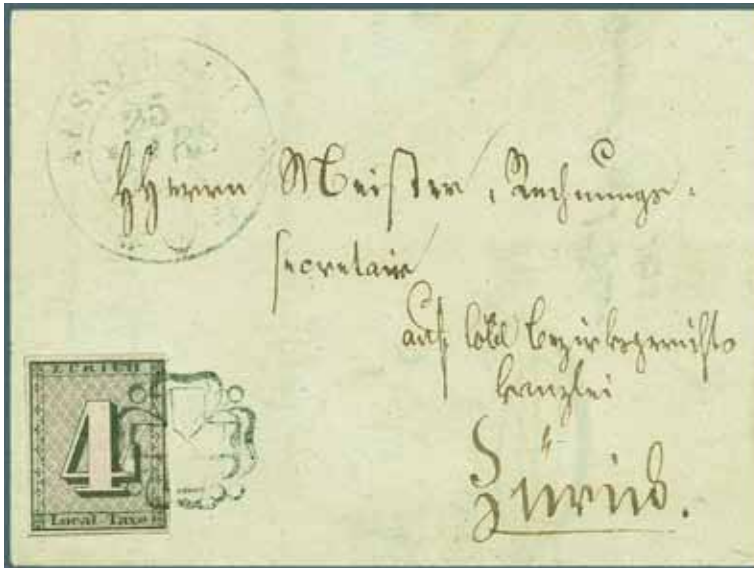 25
HHerrn Meister, Rechnungs-
secretair
auf löbl Bezirksgerichts
kanzlei
Zürich.
ZÜRICH
4
Local-Taxe